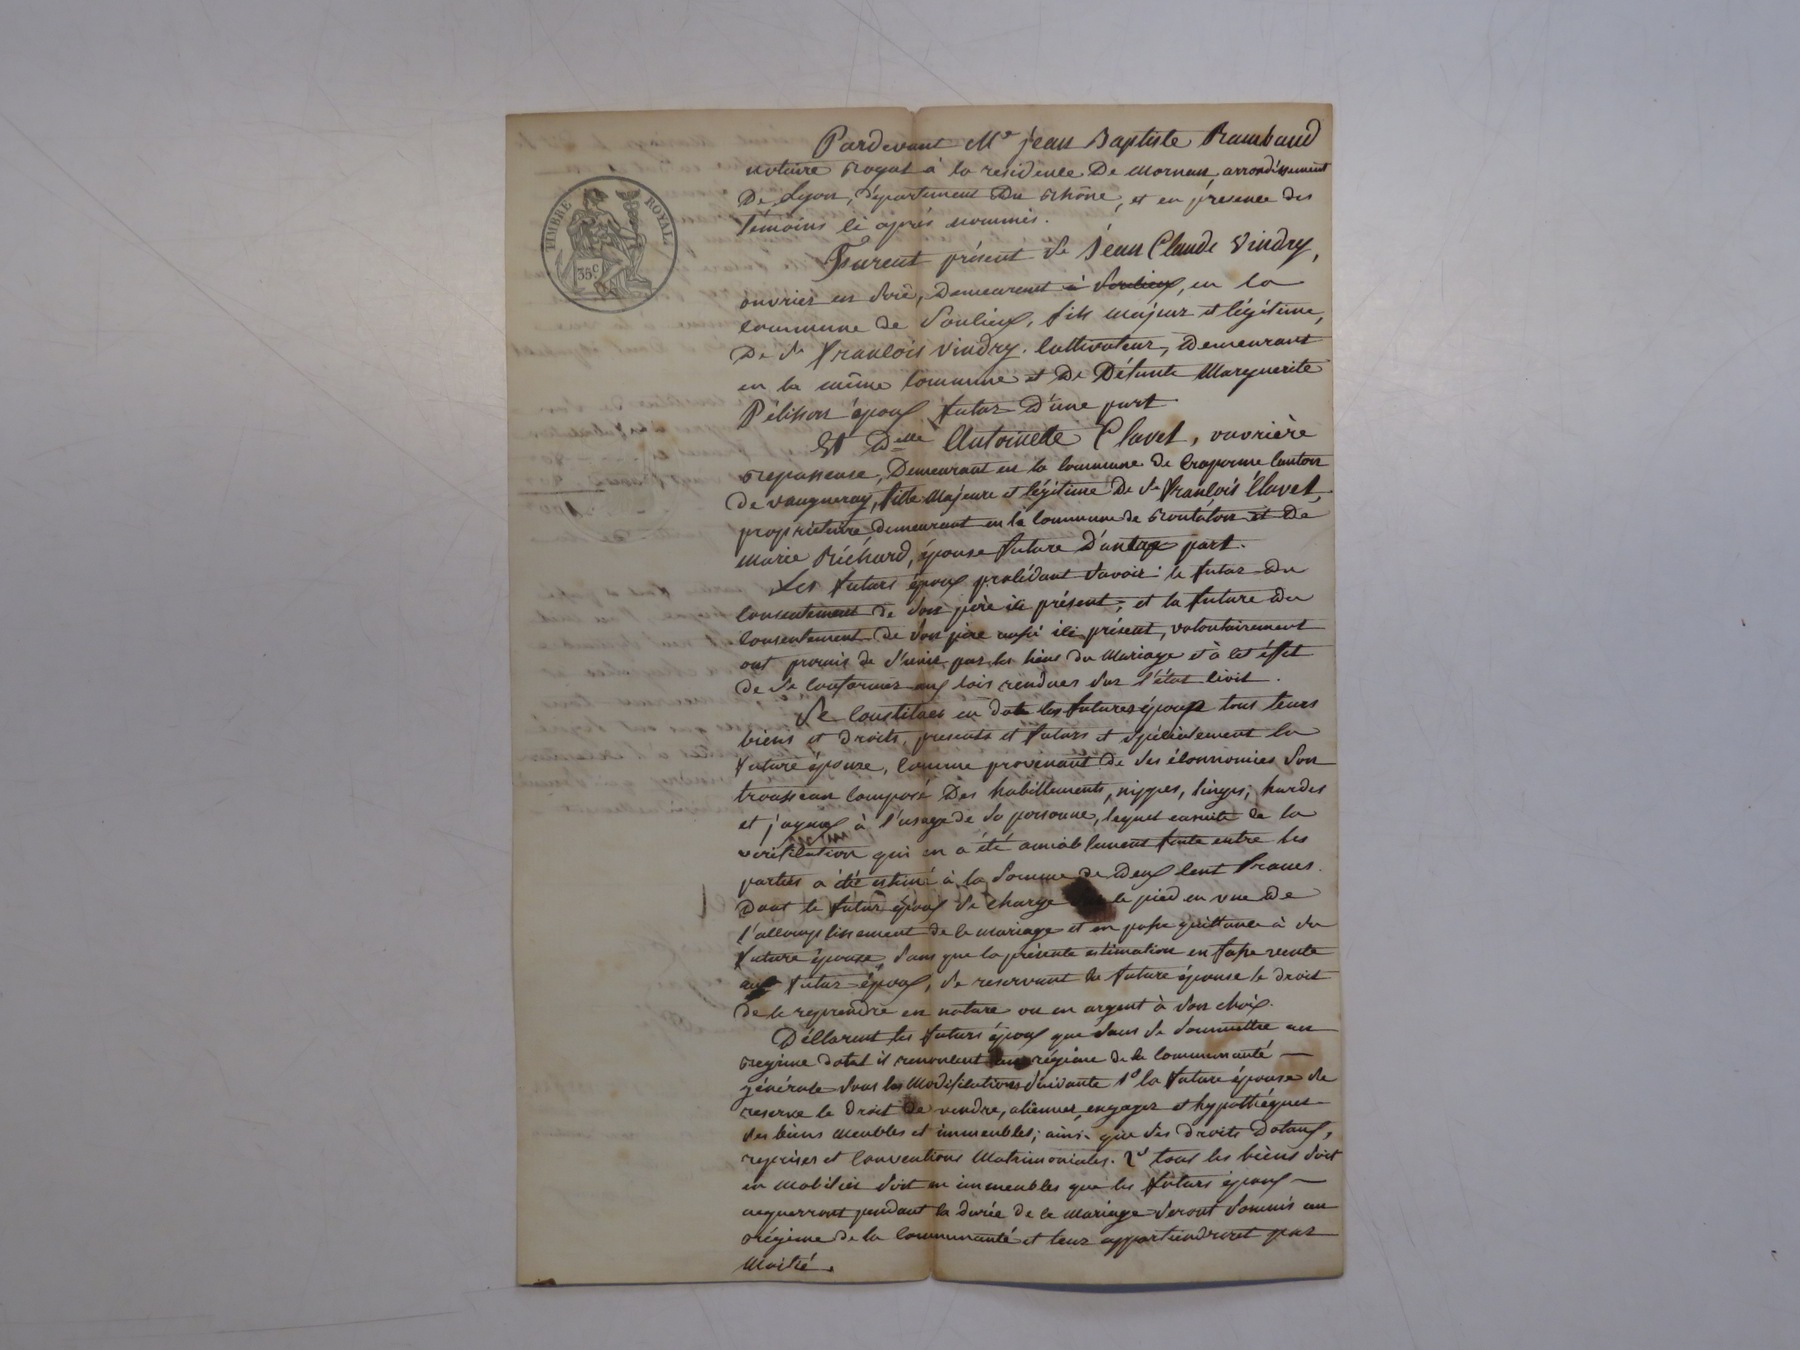 Pardevant Me jean Baptiste Rambaud
notaire royal à la residence De Mornan, arrondissement
De Lyon, Département Du Rhône, et en présence des
témoins ci après nommés.
TIMBRE ROYAL
35c
Furent présent Sr Jean Claude Vindry,
ouvrier en soie, Demeurent à Soulieux, en la
commune de Soulieux, fils majeur et légitime,
De Sr François Vindry, cultivateur, Demeurant
en la même commune et De Défunte Marguerite
Pélisson époux futur D'une part
Et Delle Antoinette Clavel, ouvrière
repasseuse, Demeurant en la commune de Craponne canton
de vaugneray, fille Majeure et légitime De Sr François Clavel,
propriétaire demeurant en la commune de Rontalon et De
Marie Richard, épouse future D'autre part.
Les futurs époux procédant savoir: le futur Du
consentement de son père ici présent; et la future Du
consentement De son père aussi ici présent, volontairement
ont promis de s'unir par les liens du Mariage et à cet effet
de se conformer aux lois rendues sur l'état civil.
Se constituent en dot les futures époux tous leurs
biens et droits, presents et futurs et spécialement la
future épouse, comme provenant de ses éconnomies son
trousseau composé Des habillements, nippes, linges, hardes
et joyaux à l'usage de sa personne, lequel ensuite de la
verification qui en a été amiablement faite entre les
parties a été estimé à la somme de Deux cent francs.
Dont le futur époux se charge le pied en vue De
l'accomplissement de ce mariage et en passe quittance à sa
future épouse, sans que la présente estimation en fasse vente
au futur époux, se reservant la future épouse le droit
de le reprendre en nature ou en argent à son choix.
Déclarent les futurs époux que sans se soumettre au
regime dotal il régime de la communauté
générale sous les Modifications suivante 1º la future épouse se
reserve le droit De vendre, aliéner, engager et hypothéquer
ses biens meubles et immeubles; ainsi que ses droits Dotaux,
reprises et conventions Matrimoniales. 2º tous les biens soit
en Mobilier soit en immeubles que les futurs époux
acquerront pendant la durée de ce Mariage seront soumis au
régime de la communauté et leur appartiendront par
Moitié.